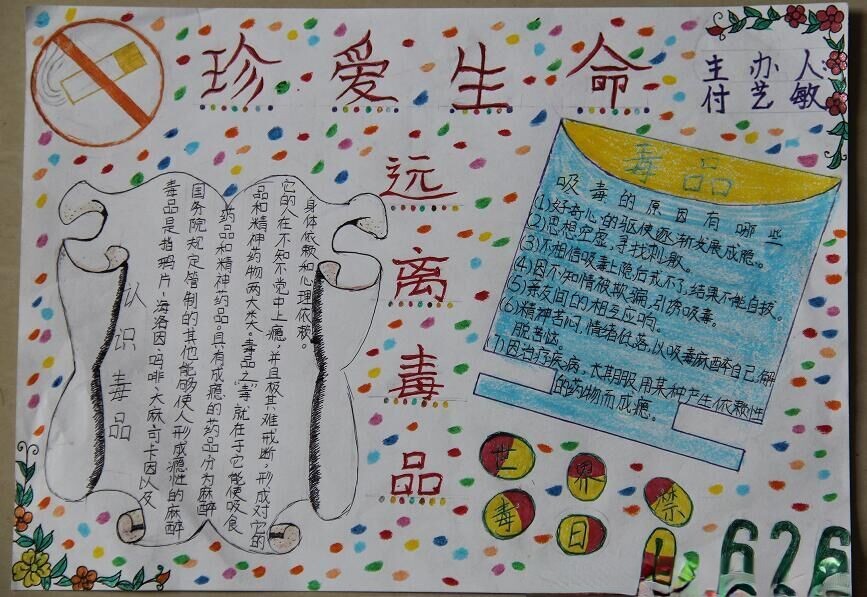 珍爱生命
主办人:
付艺敏
远离毒品
认识毒品
毒品是指鸦片、海洛因、吗啡、大麻、可卡因以及
国务院规定管制的其他能够使人形成瘾性的麻醉
药品和精神药品。具有成瘾的药品分为麻醉
品和精神药物两大类。毒品之“毒”就在于它能使吸食
它的人在不知不觉中上瘾,并且极其难戒断,形成对它的
身体依赖和心理依赖。
毒品
吸毒的原因有哪些
(1)好奇心的驱使逐渐发展成瘾。
(2)思想空虚,寻找刺激。
(3)不相信吸毒上隐后戒不了,结果不能自拔。
(4)因不知情被欺骗,引诱吸毒。
(5)亲友间的相互应响。
(6)精神苦闷,情绪低落,以吸毒麻醉自己,解
脱苦恼。
(7)因治疗疾病,大期服用某种产生依赖性
的药物而成瘾。
世界禁
毒日
626